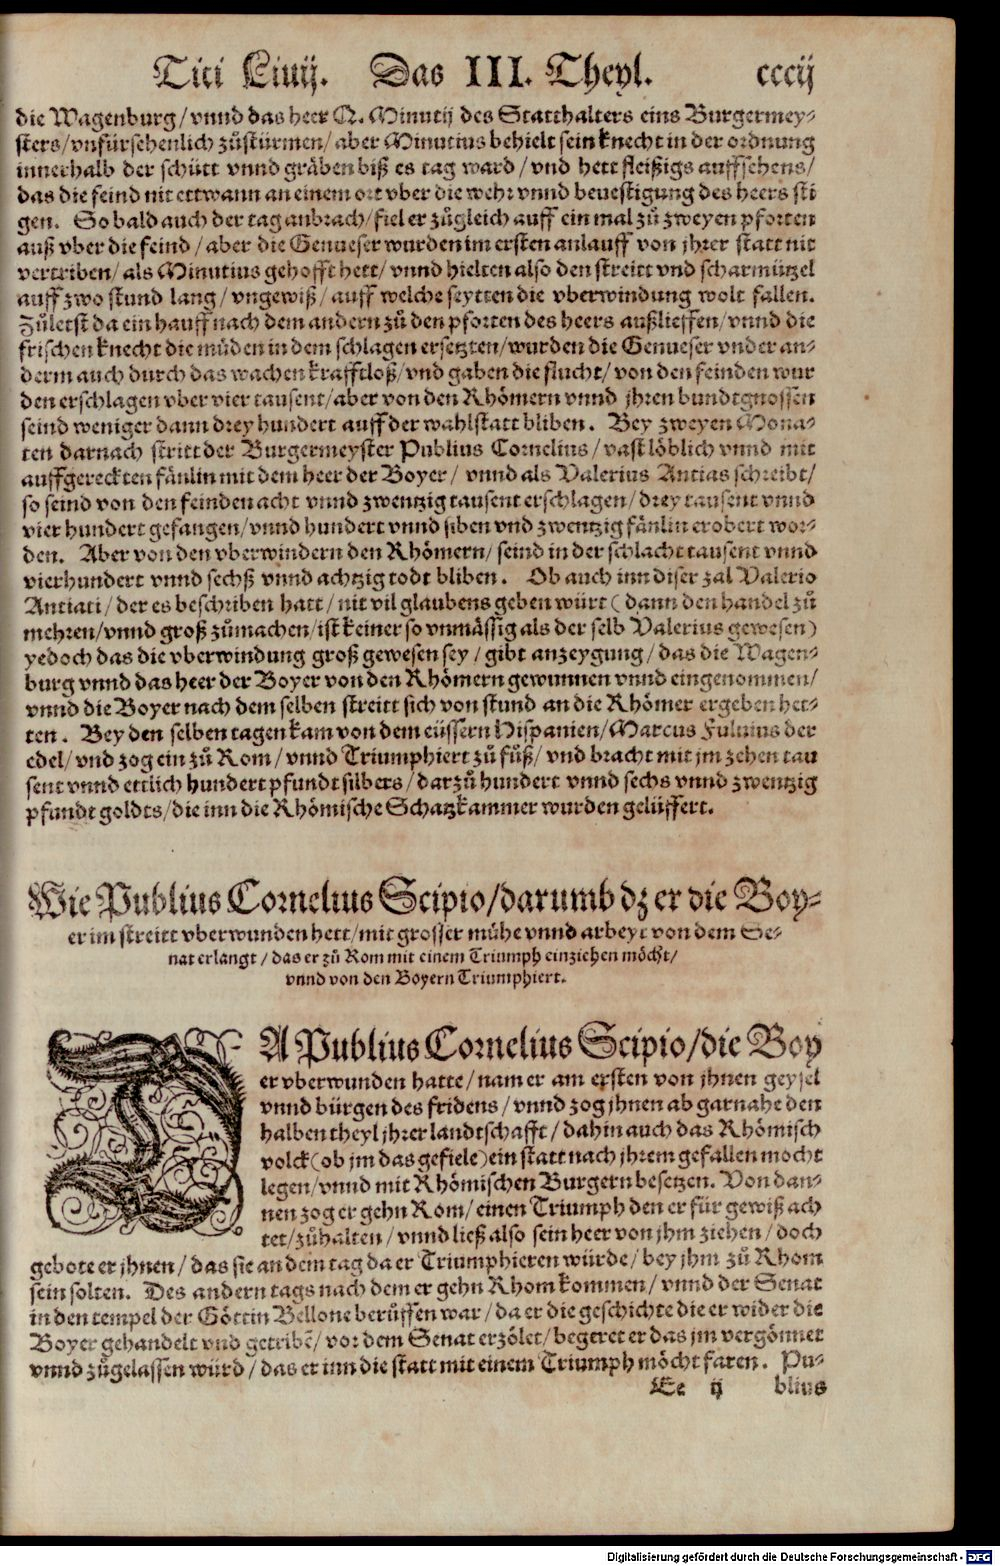 Titi Liuij. Das III. Theyl. cccij
die Wagenburg/vnnd das heer Q. Minutij des Statthalters eins Burgermey-
sters/vnfürsehenlich zůstürmen/aber Minutius behielt sein knecht in der ordnung
innerhalb der schütt vnnd gräben biß es tag ward/vnd hett fleißigs auffsehens/
das die feind nit ettwann an einem ort vber die wehr vnnd beuestigung des heers sti
gen. So bald auch der tag anbrach/fiel er zůgleich auff ein mal zů zweyen pforten
auß vber die feind/aber die Genueser wurden im ersten anlauff von jhrer statt nit
vertriben/als Minutius gehofft hett/vnnd hielten also den streitt vnd scharmützel
auff zwo stund lang/vngewiß/auff welche seytten die vberwindung wolt fallen.
Zůletst da ein hauff nach dem andern zů den pforten des heers außlieffen/vnnd die
frischen knecht die müden in dem schlagen ersetzten/wurden die Genueser vnder an-
derm auch durch das wachen krafftloß/vnd gaben die flucht/von den feinden wur
den erschlagen vber vier tausent/aber von den Rhömern vnnd jhren bundtgnossen
seind weniger dann drey hundert auff der wahlstatt bliben. Bey zweyen Mona-
ten darnach stritt der Burgermeyster Publius Cornelius/vast löblich vnnd mit
auffgereckten fänlin mit dem heer der Boyer/vnnd als Valerius Antias schreibt/
so seind von den feinden acht vnnd zwentzig tausent erschlagen/drey tausent vnnd
vier hundert gefangen/vnnd hundert vnnd siben vnd zwentzig fänlin erobert wor-
den. Aber von den vberwindern den Rhömern/seind in der schlacht tausent vnnd
vierhundert vnnd sechß vnnd achtzig todt bliben. Ob auch inn diser zal Valerio
Antiati/der es beschriben hatt/nit vil glaubens geben würt (dann den handel zů
mehren/vnnd groß zůmachen/ist keiner so vnmässig als der selb Valerius gewesen)
yedoch das die vberwindung groß gewesen sey/gibt anzeygung/das die Wagen-
burg vnnd das heer der Boyer von den Rhömern gewunnen vnnd eingenommen/
vnnd die Boyer nach dem selben streitt sich von stund an die Rhömer ergeben het-
ten. Bey den selben tagen kam von dem eüssern Hispanien/Marcus Fuluius der
edel/vnd zog ein zů Rom/vnnd Triumphiert zů fůß/vnd bracht mit jm zehen tau
sent vnnd ettlich hundert pfundt silbers/darzů hundert vnnd sechs vnnd zwentzig
pfundt goldts/die inn die Rhömische Schatzkammer wurden gelüffert.
Wie Publius Cornelius Scipio/darumb dz er die Boy-
er im streitt vberwunden hett/mit grosser mühe vnnd arbeyt von dem Se-
nat erlangt/das er zů Rom mit einem Triumph einziehen möcht/
vnnd von den Boyern Triumphiert.
DA Publius Cornelius Scipio/die Boy
er vberwunden hatte/nam er am ersten von jhnen geysel
vnnd bürgen des fridens/vnnd zog jhnen ab gar nahe den
halben theyl jhrer landtschafft/dahin auch das Rhömisch
volck (ob jm das gefiele) ein statt nach jhrem gefallen mocht
legen/vnnd mit Rhömischen Burgern besetzen. Von dan-
nen zog er gehn Rom/einen Triumph den er für gewiß ach
tet/zůhalten/vnnd ließ also sein heer von jhm ziehen/doch
gebote er jhnen/das sie an dem tag da er Triumphieren würde/bey jhm zů Rhom
sein solten. Des andern tags nach dem er gehn Rhom kommen/vnnd der Senat
in den tempel der Göttin Bellone berüffen war/da er die geschichte die er wider die
Boyer gehandelt vnd getribē/vor dem Senat erzölet/begeret er das jm vergönnet
vnnd zůgelassen würd/das er inn die statt mit einem Triumph möcht faren. Pu-
Ee ij blius
Digitalisierung gefördert durch die Deutsche Forschungsgemeinschaft - DFG